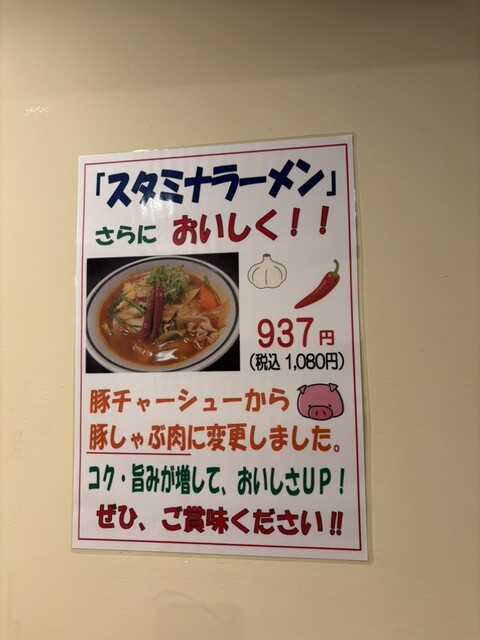 「スタミナラーメン」
さらに おいしく！！
937円
(税込 1,080円)
豚チャーシューから
豚しゃぶ肉に変更しました。
コク・旨みが増して、おいしさUP！
ぜひ、ご賞味ください!!